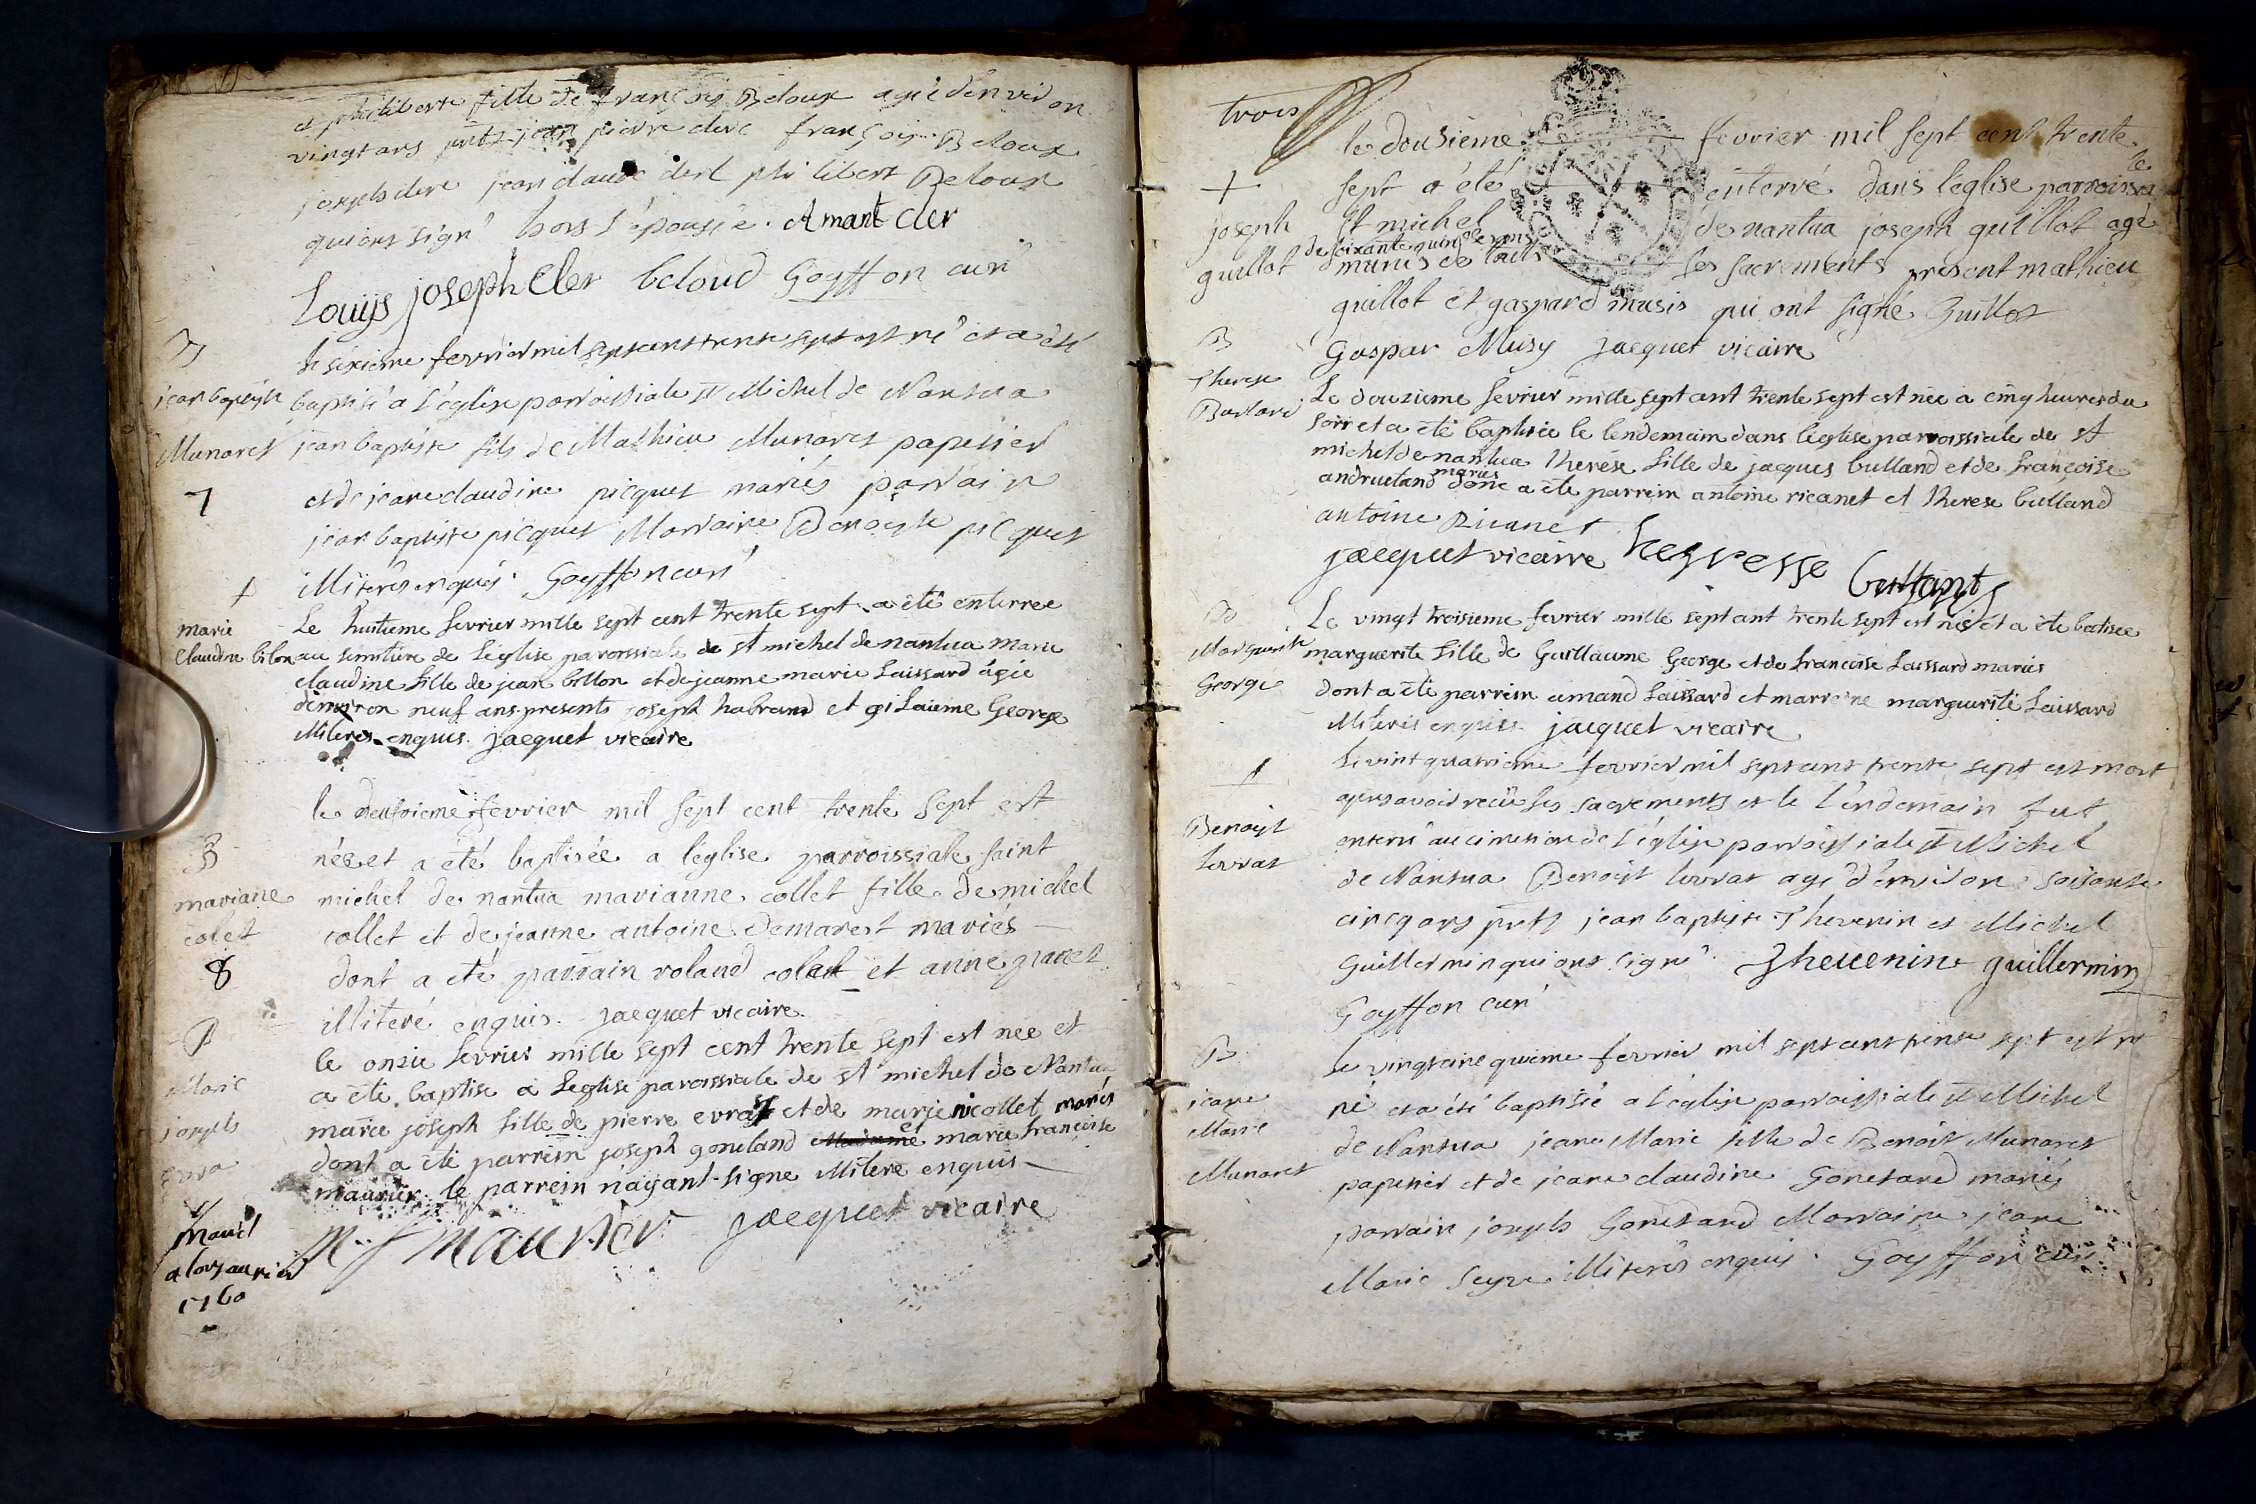 et philiberte fille de françois Beloux agée d'environ
vingt ans puts jean pierre clerc françois Beloux
joseph clerc jean claude clerc philibert Beloux
qui ont signé hors l'épousée. Amant Cler
Louijs joseph Cler beloud Goyffon curé
B
jean baptiste
Munaret
7
le sixieme fevrier mil sept cent trente sept est né et a été
baptisé a l'église parroissiale St Michel de Nantua
jean baptiste fils de Mathieu Munaret papetier
et de jeane claudine picquet mariés parrain
jean baptiste picquet Marraine Benoyte picquet
illiterés enquis. Goyffon curé
+
marie
Claudine bilon
Le huitieme fevrier mille sept cent trente sept a été enterree
au semitire de l'église paroissiale de st michel de nantua marie
claudine fille de jean billon et de jeanne marie Laissard agée
d'environ neuf ans presents joseph habrand et gilaume George
illiteres enquis. jacquet vicaire
B
mariane
colet
8
le deusieme fevrier mil sept cent trente sept est
née et a été baptisée a l'église parroissiale saint
michel de nantua marianne collet fille de michel
collet et de jeanne antoine demaret mariés
dont a eté parrain roland colet et anne
illiteré enquis. jacquet vicaire.
B
Marie
joseph
le onzie fevrier mille sept cent trente sept est nee et
a été baptise a l'eglise paroissiale de st michel de Nantua
marie joseph fille de pierre evrat et de marie nicollet mariés
dont a été parrein joseph goneland et marie françoise
maurier. le parrein n'ayant signe illitere enquis
m. f maurier jacquet vicaire
1760
trois
+
joseph
guillot
le dousieme fevrier mil sept cent trente
sept a été enterré dans l'eglise parroissialle
St michel de nantua joseph guillot agé
de soixante quinse ans
munis de touts les sacrements present mathieu
guillot et gaspard musis qui ont signé Guillot
Gaspar Musy jacquet vicaire
B
Therese
Le douzieme fevrier mille sept cent trente sept est née a cinq heures du
soir et a été baptisée le lendemain dans l'eglise parroissiale de st
michel de nantua Therése fille de jacques bulland et de françoise
andruetand mariés dont a été parrein antoine ricanet et Therese bulland
antoine Ricanet
jacquet vicaire
B
Marguerite
George
Le vingt troisieme fevrier mille sept cent trente sept est née et a été batisee
marguerite fille de Guillaume George et de francoise Laissard mariés
dont a été parrein amand Laissard et marreine marguerite Laissard
illiterés enquis jacquet vicaire
+
Benoist
Levrat
le vint quatrieme fevrier mil sept cent trente sept est mort
apres avoir recu les sacrements et le l'endemain fut
enterré au cimetiere de l'église parroissiale St Michel
de Nantua Benoist levrat agé d'environ soisante
cinq ans puts jean baptiste Thevenin et Michel
Guillermin qui ont signé. Thevenin guillermin
Goyffon curé
B
jeane
Marie
Munaret
le vingt cinquieme fevrier mil sept cent trente sept est
né et a été baptisée a l'église parroissiale St Michel
de Nantua jeane Marie fille de Benoit Munaret
papetier et de jeane claudine Goneland mariés
parrain joseph Goneland Marraine jeane
Marie illiterés enquis. Goyffon curé